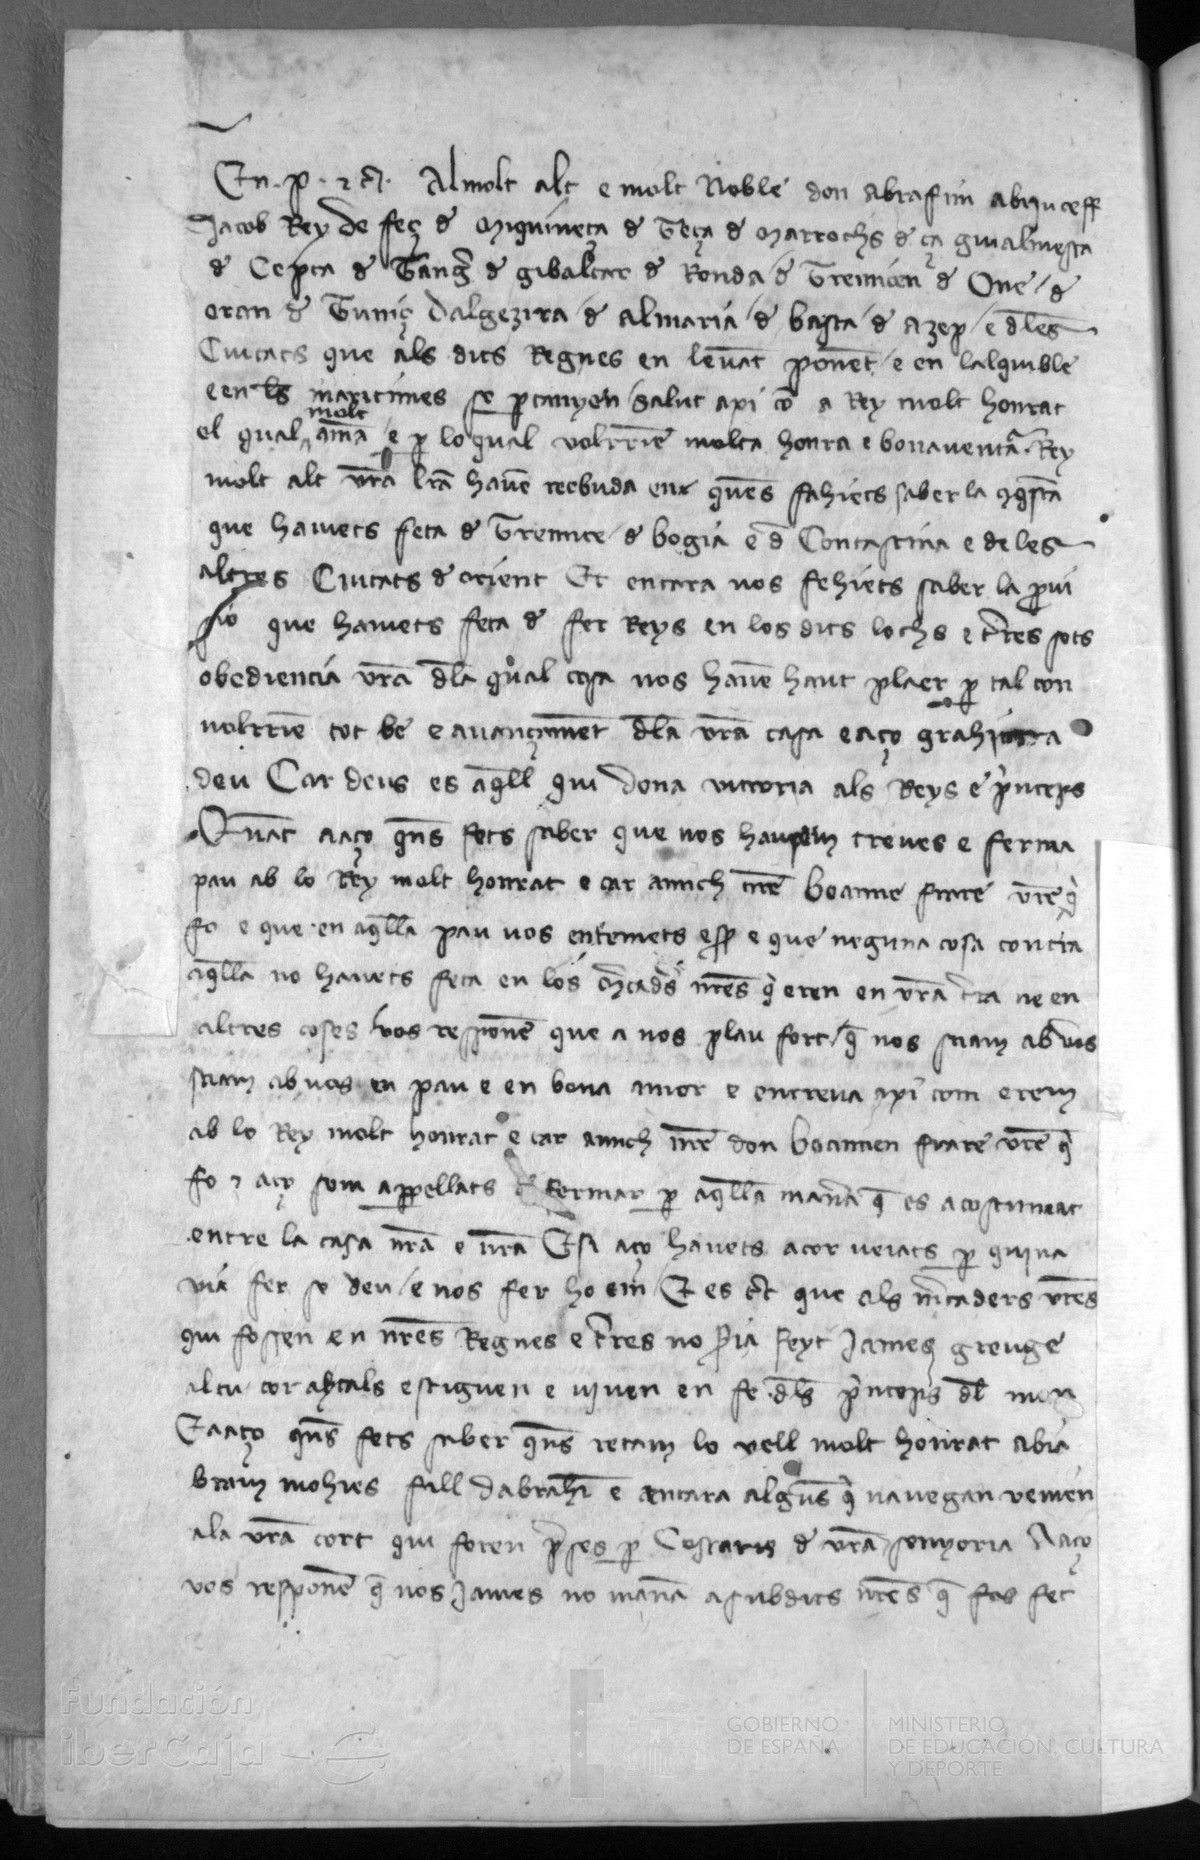 En .p. ⁊ c̃. Al molt alt e molt Noble don Abrafim abi juceff
Jacob Rey de feç de Miquineça de Teça de Marrochs de ça
de Cepta de Tanger de gibaltar de Ronda / de Tremicen de One / de
oran de Tuniç Dalgezira / de Almaria / de basta / de azep / e dles
Ciutats que als dits Regnes en levat ponẽt / e en lalquible
e en ls maritimes se ptanyen / salut axi cõ a Rey molt honrat
el qual molt amã / e p lo qual volrriẽ molta honra e bonaventã. Rey
molt alt vrã lrã havẽ reebuda en quẽs fahiets saber la ꝯqsta
que havets feta de Tremice / de bogia e d Contastina e de les
altres Ciutats de orient Et encara nos fehiets saber la provi
sio que havets feta de fer Reys en los dits lochs e tres sots
obediencia vrã dla qual cosa nos havẽ haut plaer p tal con
volrriẽ tot be e avançamẽt dla vrã casa e aço grahi
deu Car deus es aqll qui dona victoria als Reys e princeps
Quãt a aço quens fets saber que nos haviem treves e ferma
pau ab lo Rey molt honrat e car amich nrẽ Boanne frare vrẽ q̃
fo e que en aqlla pau vos entemets esser e que neguna cosa contra
aqlla no havets feta en los mcads nrẽs q̃ eren en vrã tra ne en
altres coses / vos responẽ que a nos plau fort / q̃ nos siam ab vos
siam ab vos en pau e en bona amor e en treva axi com erem
ab lo Rey molt honrat e car amich nrẽ don Boannen frare vrẽ q̃
fo ⁊ aço som appellats de fermar p aqlla manã q̃ es acostumat
entre la casa nrã e vrã E si aço havets a cor veiats p quina
via fer se deu / e nos fer ho em E es ct que als mcaders vrẽs
qui fossen en nrẽs Regnes e tres no sia feyt James greuge
alcu cor a tals estiguen e viven en fe dls princeps dl mon
E a aço quens fets saber quens retam lo vell molt honrat abia
bram mohies fill dabrahi e encara alguns q̃ navegan venien
a la vrã cort qui foren pses p Cossaris de vrã senyoria A aço
vos responẽ q̃ nos James no manã a subdits nrẽs q̃ fos fet